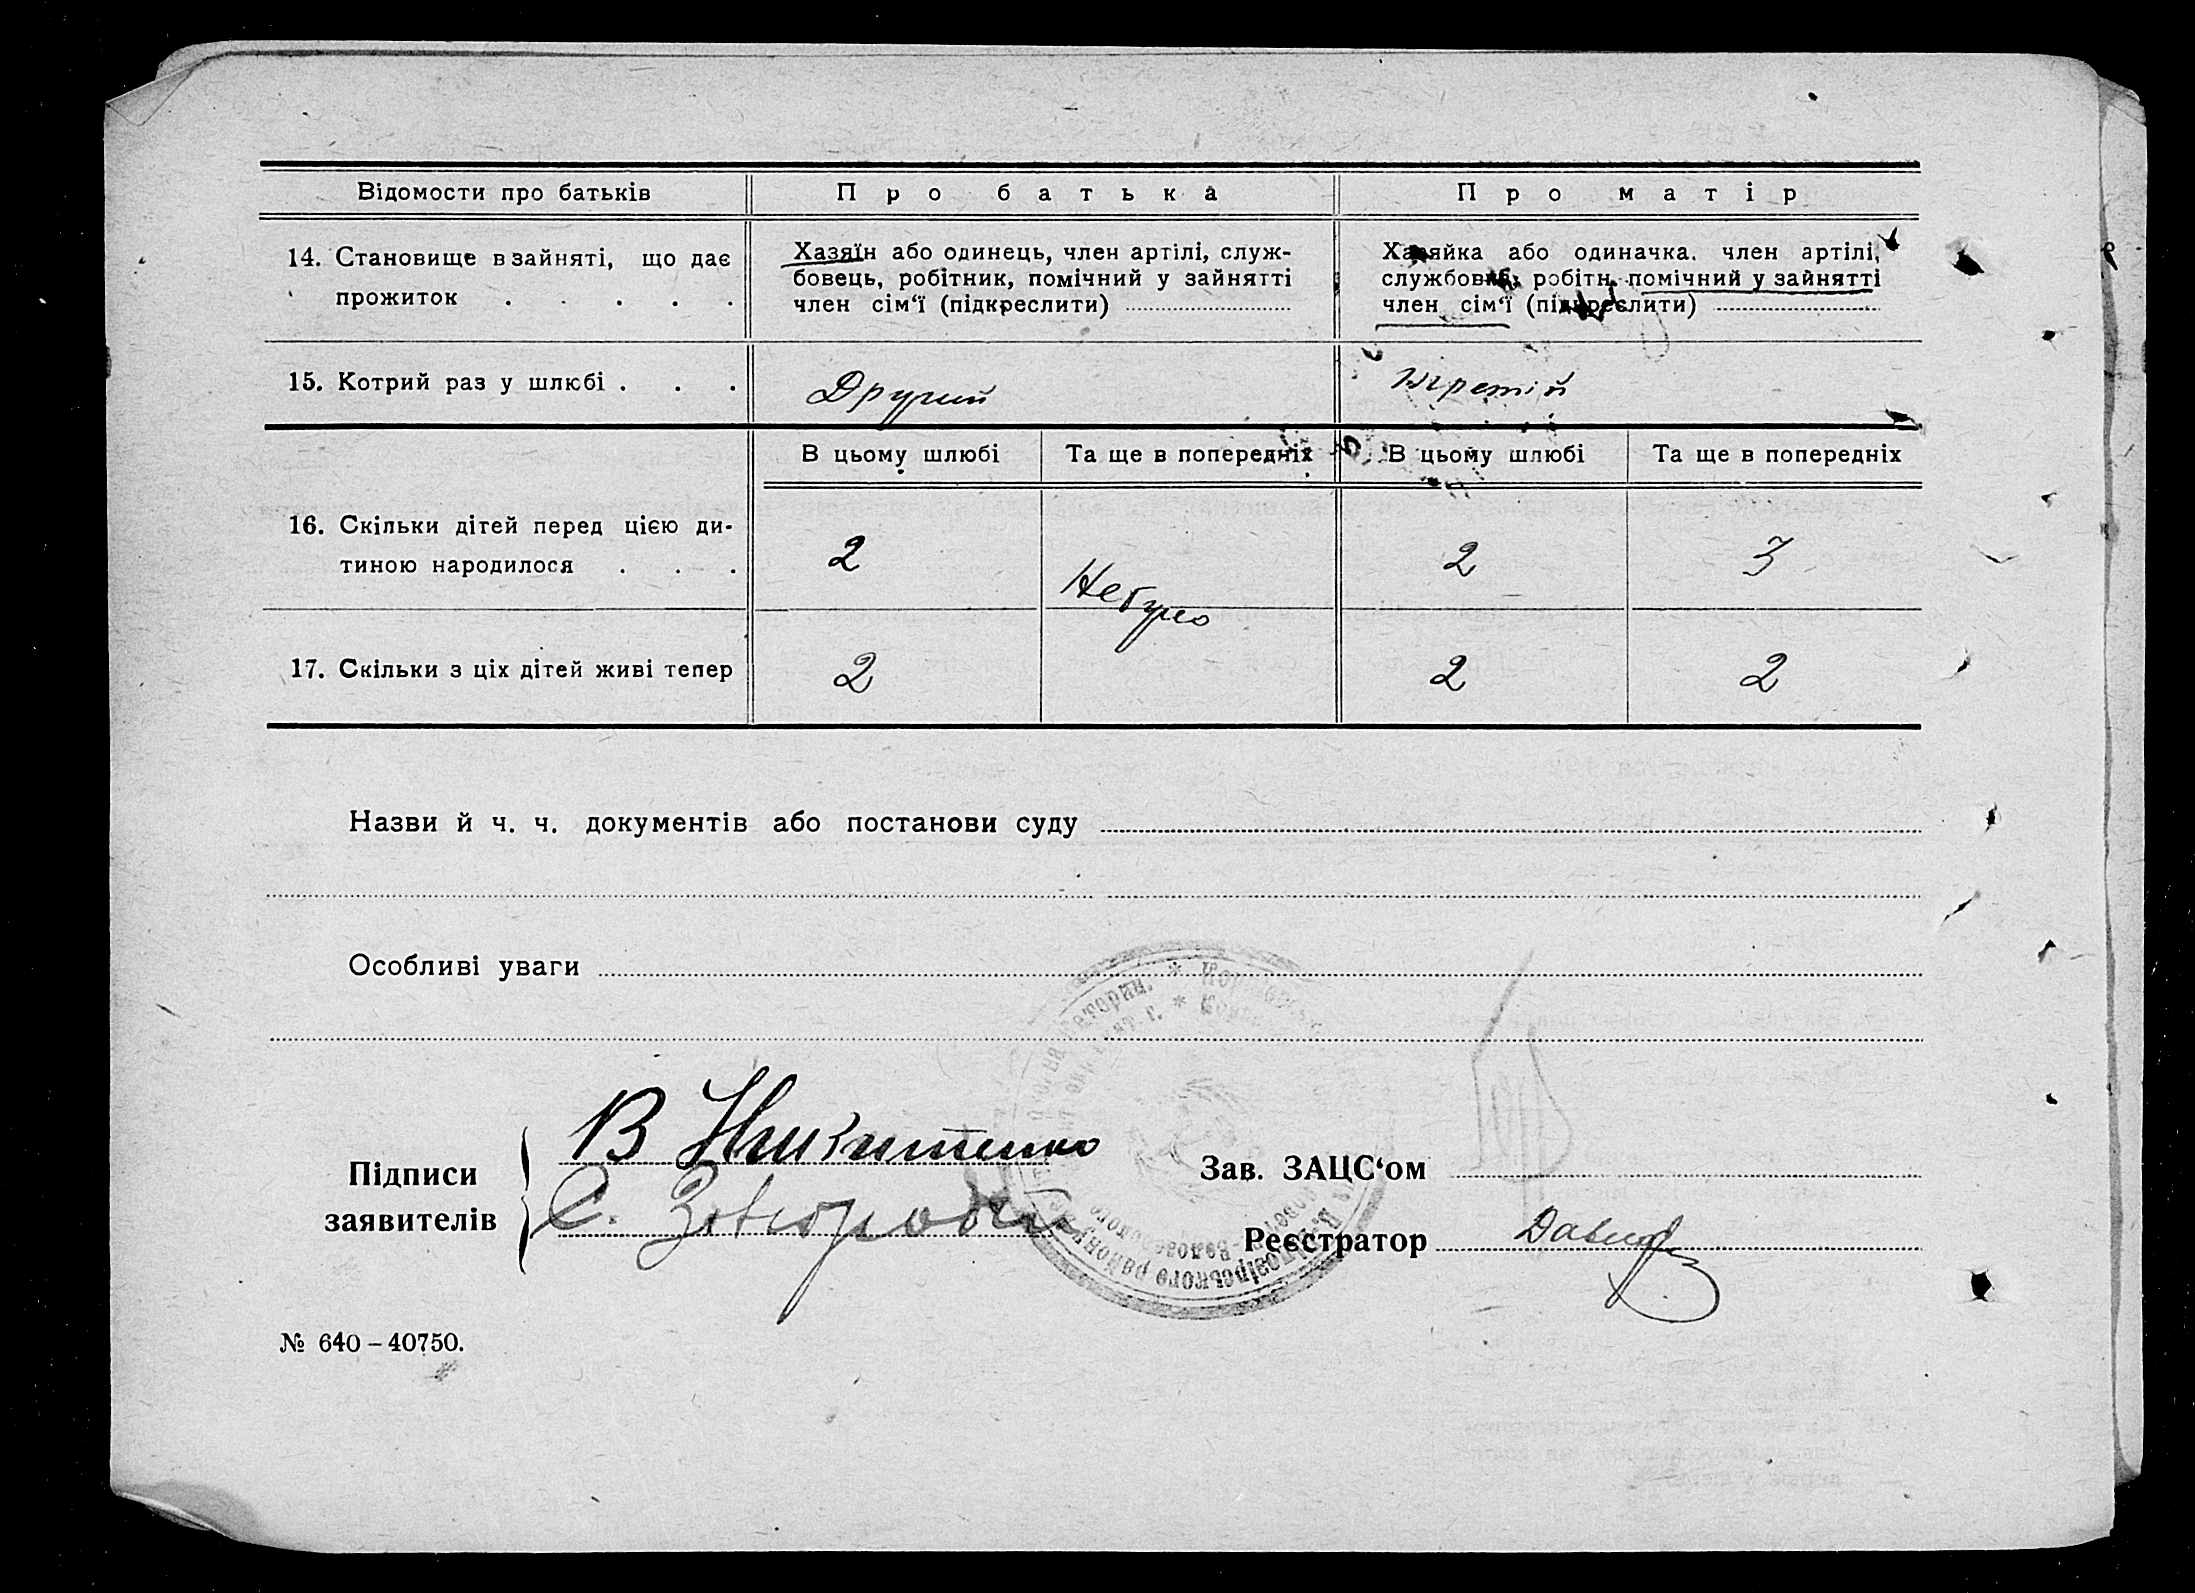 Відомости про батьків
Про батька
Про матір
14. Становище в зайняті, що дає
прожиток . . . . .
Хазяїн або одинець, член артілі, служ-
бовець, робітник, помічний у зайнятті
член сім‘ї (підкреслити)
Хазяйка або одиначка, член артілі,
службовка, робітн. помічний у зайнятті
член сім‘ї (підкреслити)
15. Котрий раз у шлюбі . . .
Другий
третій
В цьому шлюбі
Та ще в попередніх
В цьому шлюбі
Та ще в попередніх
16. Скільки дітей перед цією ди-
тиною народилося . . .
2
Небуло
2
3
17. Скільки з ціх дітей живі тепер
2
2
2
Назви й ч. ч. документів або постанови суду
Особливі уваги
Підписи
заявителів
В Никитенко
С.
Зав. ЗАЦС‘ом
Реєстратор
району
№ 640 – 40750.